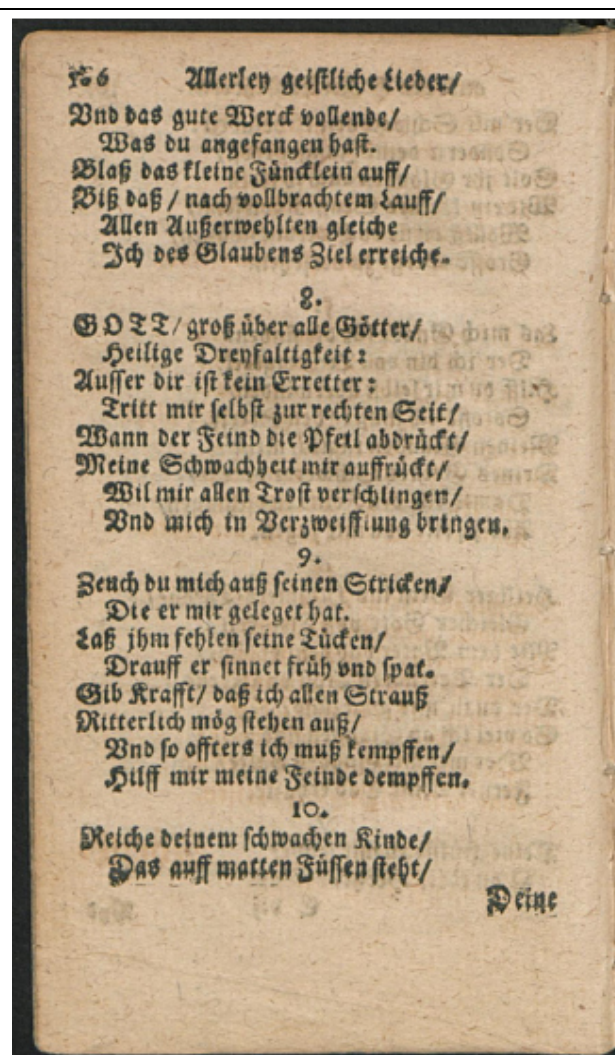 106 Allerley geistliche Lieder/
Vnd das gute Werck vollende/
Was du angefangen hast.
Blaß das kleine Füncklein auff/
Biß daß / nach vollbrachtem Lauff/
Allen Außerwehlten gleiche
Ich des Glaubens Ziel erreiche.
8.
GOTT/ groß über alle Götter/
Heilige Dreyfaltigkeit:
Ausser dir ist kein Erretter:
Tritt mir selbst zur rechten Seit/
Wann der Feind die Pfeil abdrückt/
Meine Schwachheit mir auffrückt/
Wil mir allen Trost verschlingen/
Vnd mich in Verzweifflung bringen.
9.
Zeuch du mich auß seinen Stricken/
Die er mir geleget hat.
Laß jhm fehlen seine Tücken/
Drauff er sinnet früh vnd spat.
Gib Krafft/ daß ich allen Strauß
Ritterlich mög stehen auß/
Vnd so offters ich muß kempffen/
Hilff mir meine Feinde dempffen.
10.
Reiche deinem schwachen Kinde/
Das auff matten Füssen steht/
Deine